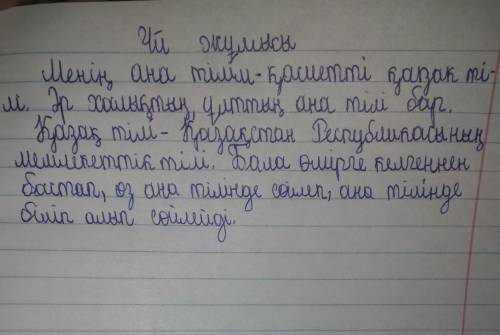 Үй жұмысы
Менің ана тілім-қасиетті қазақ ті-
лі. Әр халықтың ұлттың ана тілі бар.
Қазақ тілі- Қазақстан Республикасының
мемлекеттік тілі. Бала өмірге келгеннен
бастап, өз ана тілінде сөйлеп, ана тілінде
білім алып сөйлейді.